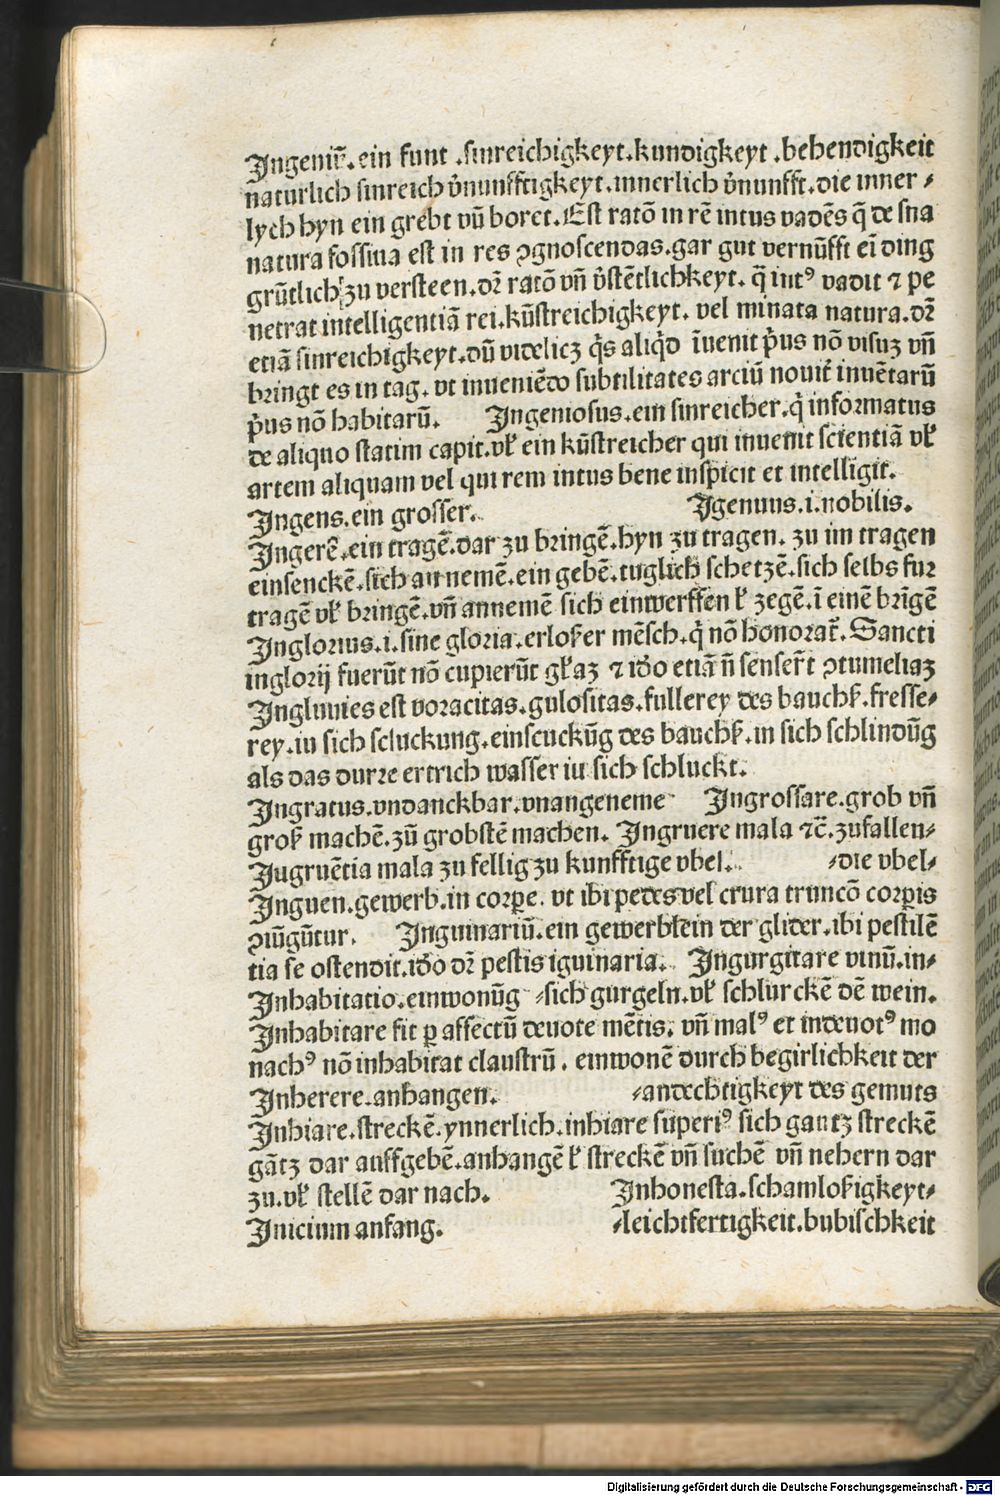 Ingeniū. ein funt .sinreichigkeyt.kundigkeyt .behendigkeit
natürlich sinreich v̉nunfftigkeyt.innerlich v̉nunfft.die inner⸗
lych hyn ein grebt vñ boret. Est ratō in rē intus vadēs q̄ de sua
natura fossiua est in res ꝯgnoscendas.gar gut vernūfft eī ding
grūtlich zu versteen.dr̄ ratō vñ v̉stētlichkeyt. q̄ intꝰ vadit ⁊ pe
netrat intelligentiā rei.kūstreichigkeyt. vel minata natura.dr̄
etiā sinreichigkeyt.dū videlicꝫ q̇s aliq̇d īuenit p̓us nō visuꝫ vñ
bringt es in tag. vt inueniēdo subtilitates arciū nouit̓ inuētarū
p̓us nō habitarū. Ingeniosus.ein sinreicher.q̇ informatus
de aliquo statim capit.vł ein kūstreicher qui inuenit scientiā vł
artem aliquam vel qui rem intus bene inspicit et intelligit.
Ingens.ein grosser. Igenuus.i.nobilis.
Ingerē.ein tragē.dar zu bringē.hyn zu tragen. zu im tragen
einsenckē.sich an nemē.ein gebē.tuglich schetzē.sich selbs fur
tragē vł bringē.vñ annemē sich einwerffen ł zegē.ī einē brīgē
Inglorius.i.sine gloria.erloßer mēsch.q̇ nō honorat̄. Sancti
inglorij fuerūt nō cupierūt głaꝫ ⁊ iđo etiā ñ senser̄t ꝯtumeliaꝫ
Ingluuies est voracitas.gulositas.fullerey des bauchß.fresse⸗
rey.in sich scluckung.einscuckūg des bauchß.in sich schlindūg
als das durre ertrich wasser in sich schluckt.
Ingratus.vndanckbar.vnangeneme Ingrossare.grob vñ
groß machē.zū grobstē machen. Ingruere mala ⁊c̄.zufallen⸗
Iugruētia mala zu fellig zu kunfftige vbel. ⸗die vbel⸗
Inguen.gewerb.in corꝑe. vt ibi pedes vel crura truncō corꝑis
ꝯiūgūtur. Inguinariū.ein gewerblein der glider.ibi pestilē
tia se ostendit.iđo dr̄ pestis iguinaria. Ingurgitare vinū.in⸗
Inhabitatio.einwonūg ⸗sich gurgeln.vł schlurckē dē wein.
Inhabitare fit ꝑ affectū deuote mētis. vñ malꝰ et indeuotꝰ mo
nachꝰ nō inhabitat claustrū. einwonē durch begirlichkeit der
Inherere.anhangen. ⸗andechtigkeyt des gemuts
Inhiare.streckē.ynnerlich.inhiare superiꝰ sich gantz streckē
gātz dar auffgebē.anhangē ł streckē vñ suchē vñ nehern dar
zu.vł stellē dar nach. Inhonesta.schamloßigkeyt⸗
Inicium anfang. ⸗leichtfertigkeit.bubischkeit
Digitalisierung gefördert durch die Deutsche Forschungsgemeinschaft - DFG